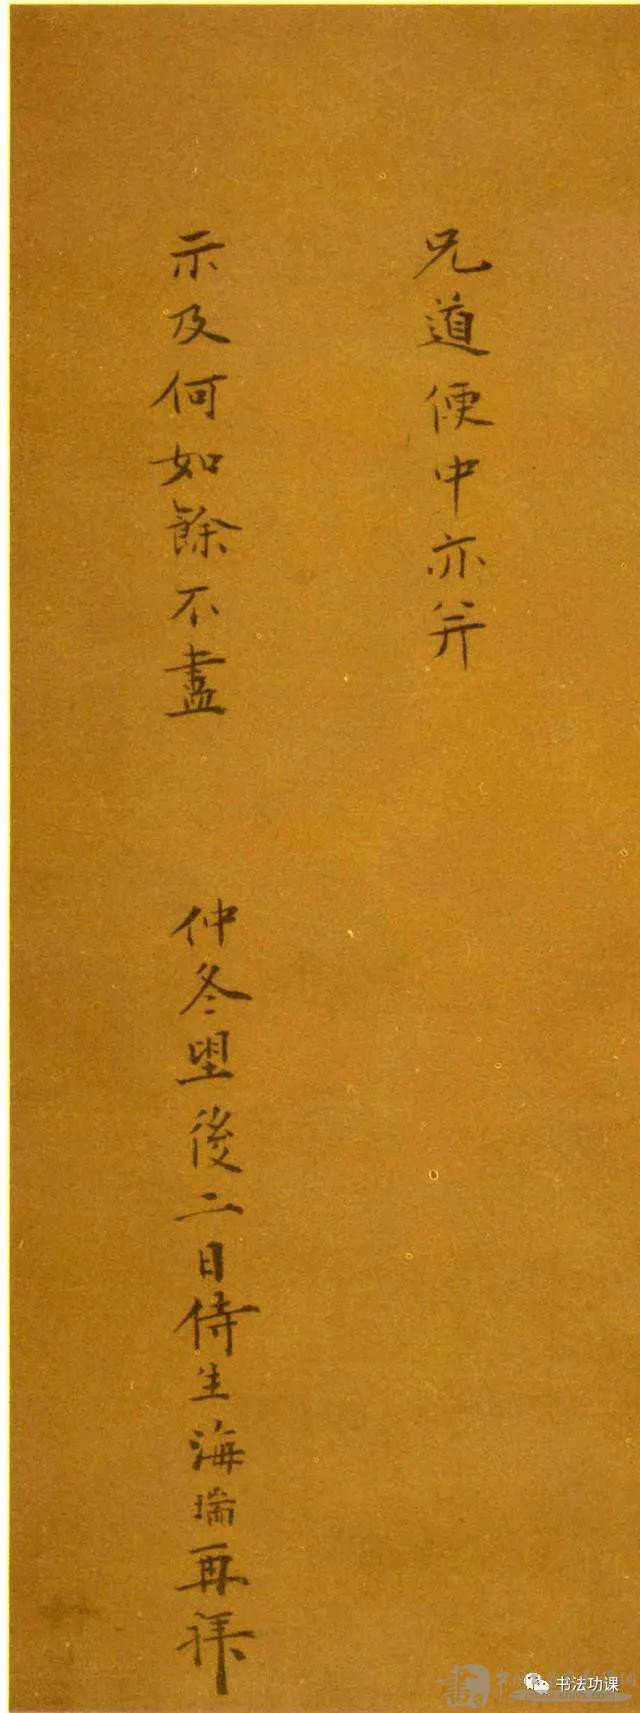 兄道便中亦并
示及何如餘不盡
仲冬望後二日侍生海瑞再拜
书法功课